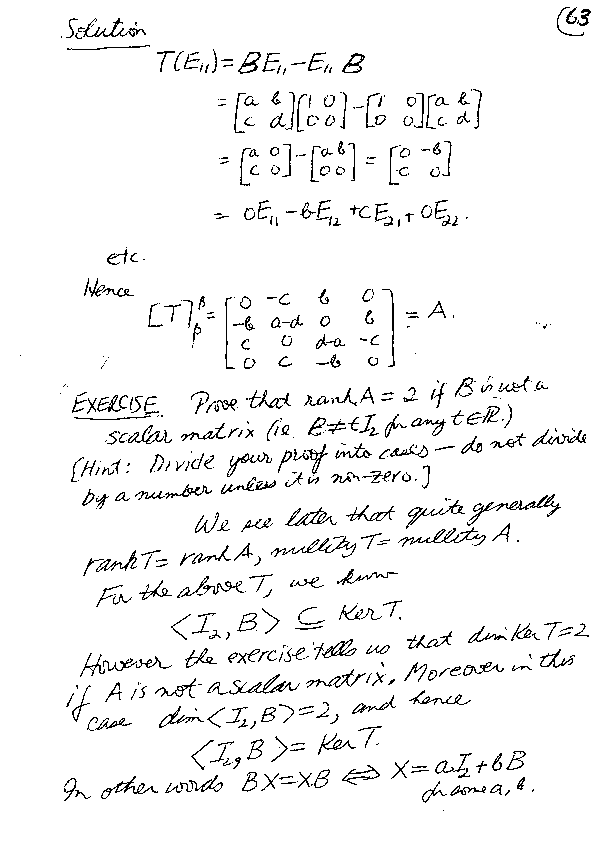 63
Solution
T(E₁₁) = BE₁₁ - E₁₁ B
= [a b; c d][1 0; 0 0] - [1 0; 0 0][a b; c d]
= [a 0; c 0] - [a b; 0 0] = [0 -b; c 0]
= 0E₁₁ - bE₁₂ + cE₂₁ + 0E₂₂.
etc.
Hence
[T]ᵦᵝ = [0 -c b 0; -b a-d 0 b; c 0 d-a -c; 0 c -b 0] = A.
EXERCISE. Prove that rank A = 2 if B is not a
scalar matrix (ie. B ≠ tI₂ for any t ∈ ℝ.)
[Hint: Divide your proof into cases — do not divide
by a number unless it is non-zero.]
We see later that quite generally
rank T = rank A, nullity T = nullity A.
For the above T, we know
⟨I₂, B⟩ ⊆ Ker T.
However the exercise tells us that dim Ker T = 2
if A is not a scalar matrix. Moreover in this
case dim⟨I₂, B⟩ = 2, and hence
⟨I₂, B⟩ = Ker T.
In other words BX = XB ⇔ X = aI₂ + bB
for some a, b.